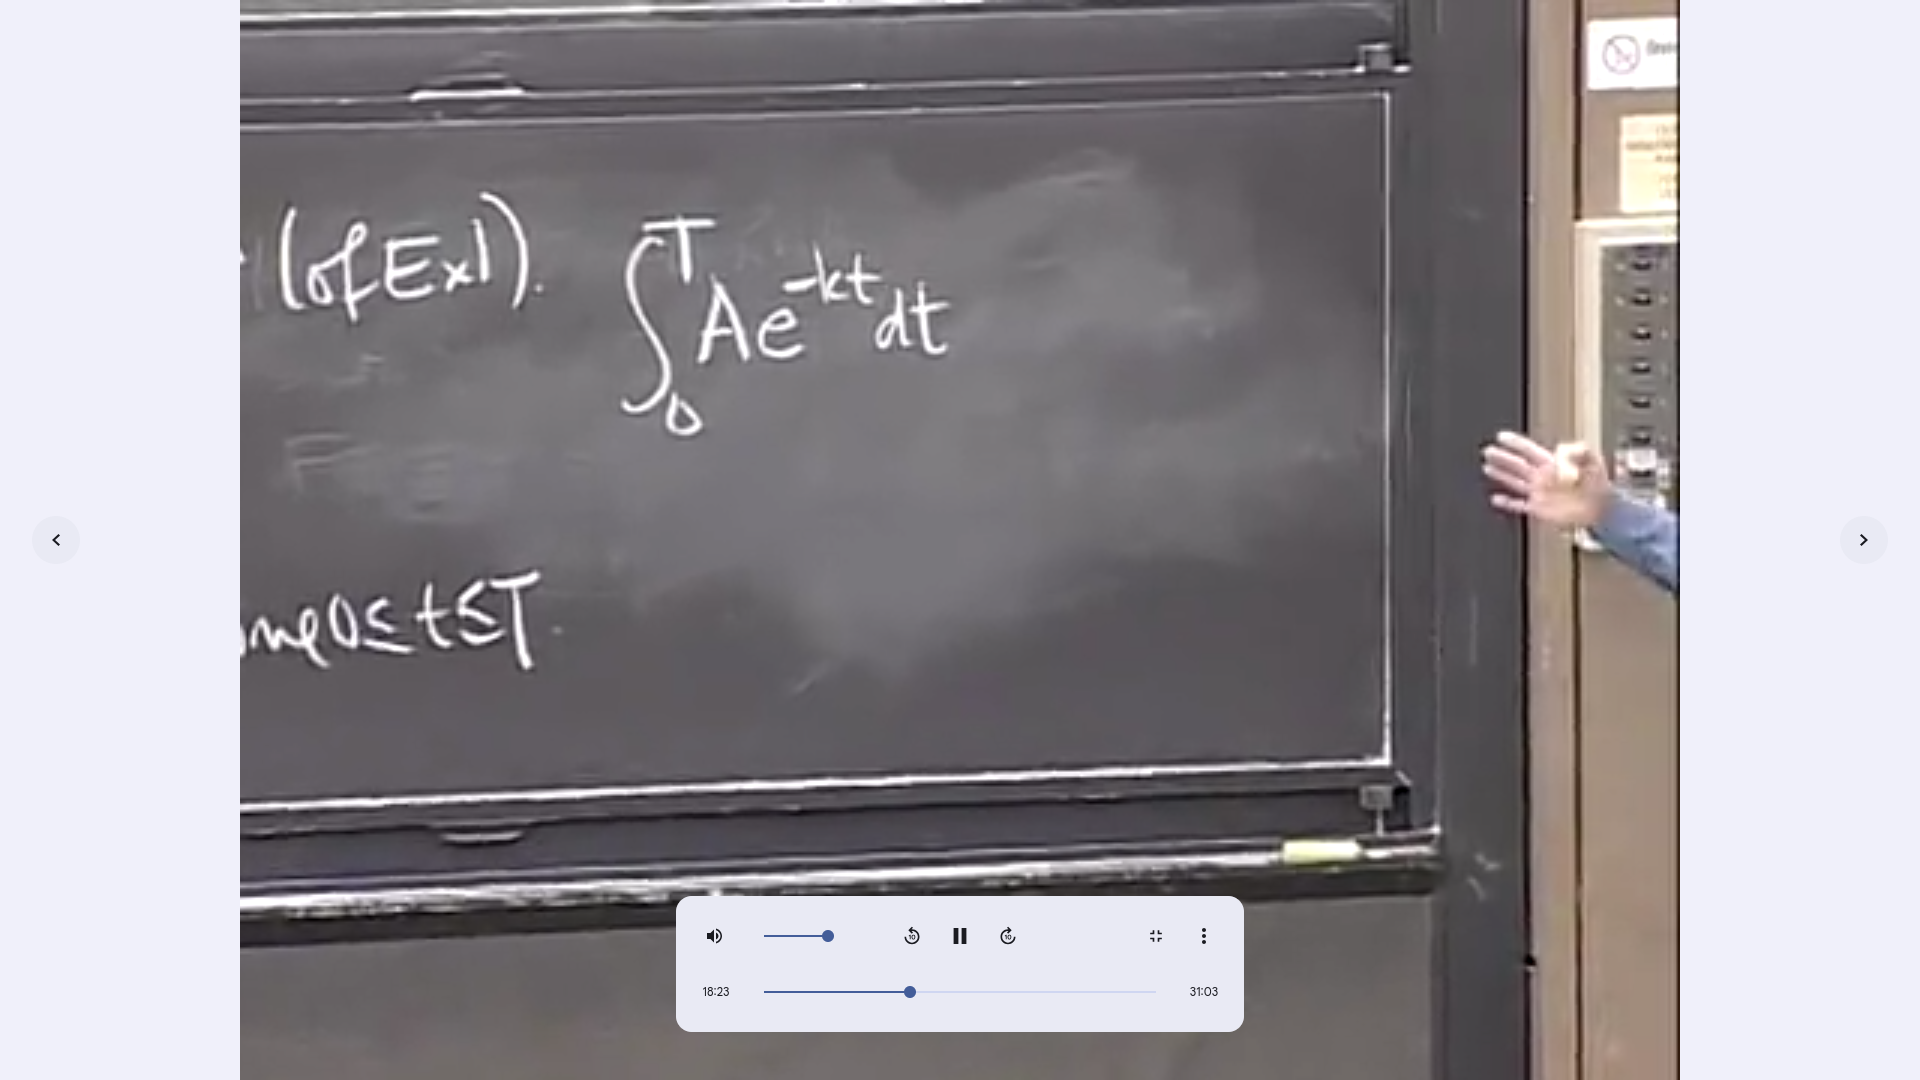 (of Ex1). ∫₀ᵀ Ae^{-kt} dt
0 ≤ t ≤ T.
10 10
18:23 31:03